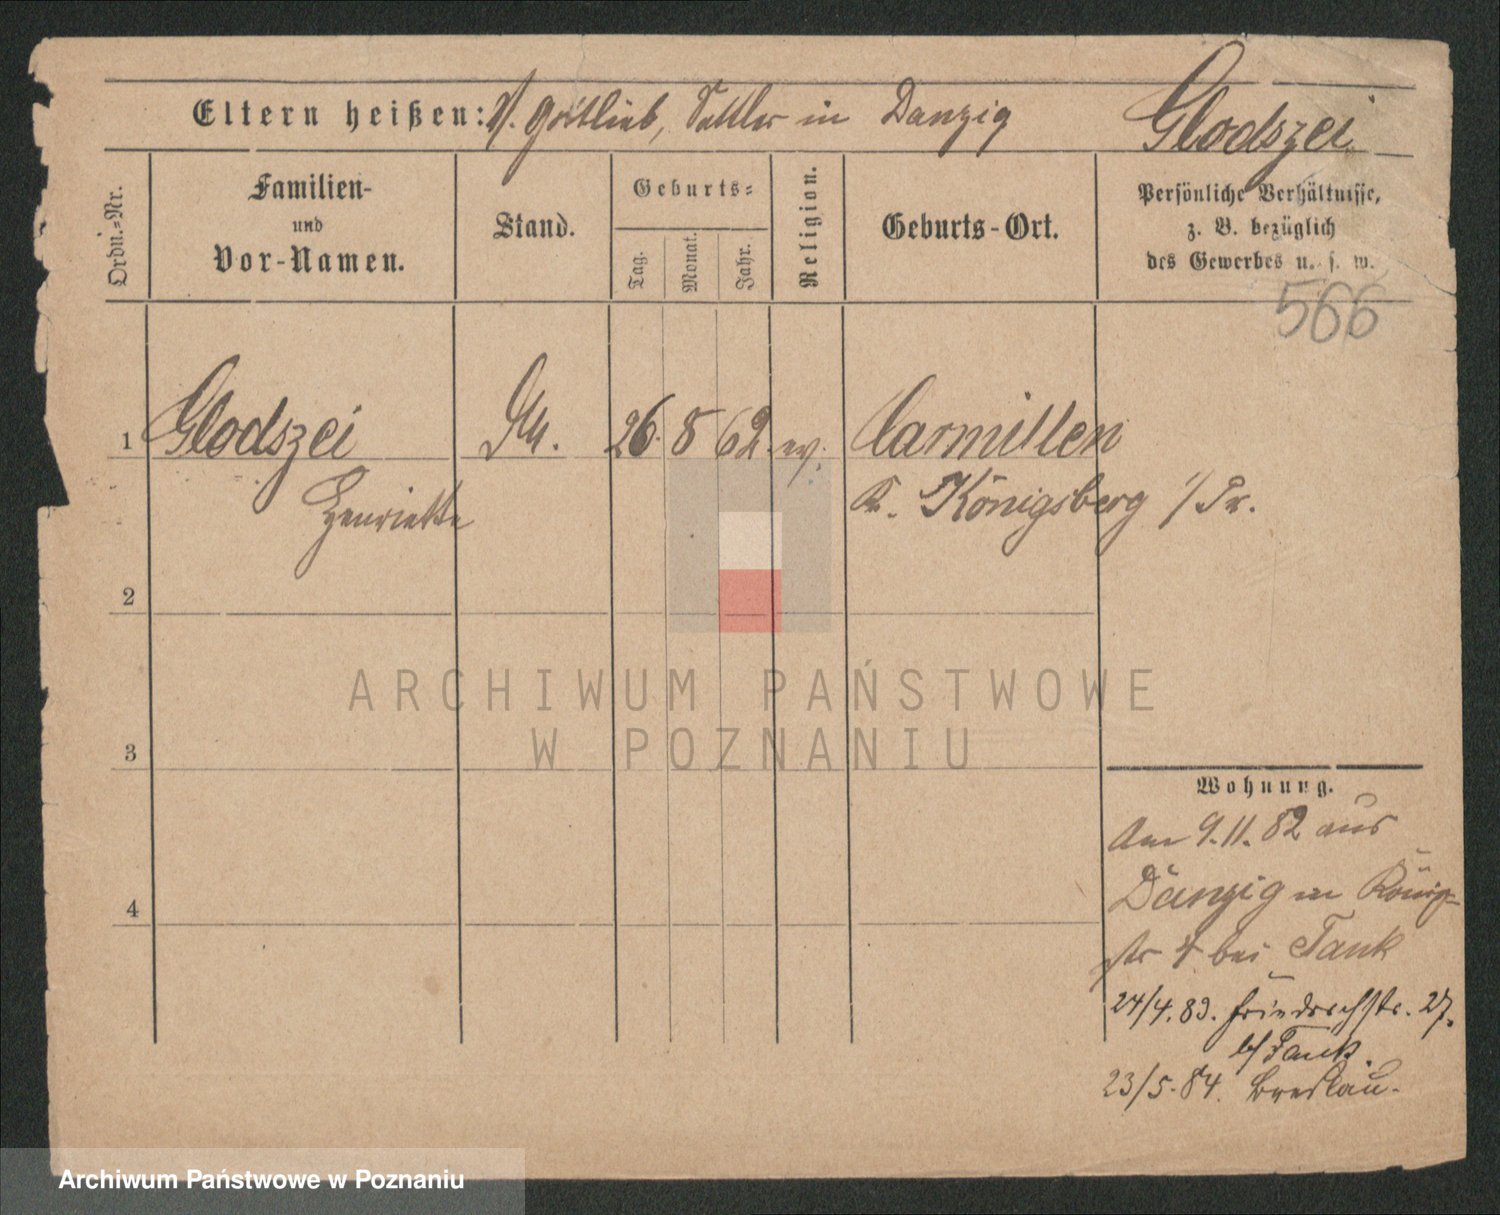 Eltern heißen: V. Gottlieb, Sattler in Danzig
Glodszei
Ordn.-Nr.
Familien-
und
Vor-Namen.
Stand.
Geburts-
Tag.
Monat.
Jahr.
Religion.
Geburts-Ort.
Persönliche Verhältnisse,
z. B. bezüglich
des Gewerbes u. s. w.
566
1
Glodszei
26. 8 62. ev.
Carmitten
Henriette
Kr. Königsberg i/Pr.
2
3
4
ARCHIWUM PAŃSTWOWE
W POZNANIU
Wohnung.
Am 9.11.82 aus
Danzig in König-
str 4 bei Tank
24/4.83. Friedrichstr. 27.
b/ Tank.
23/5.84. Breslau.
Archiwum Państwowe w Poznaniu